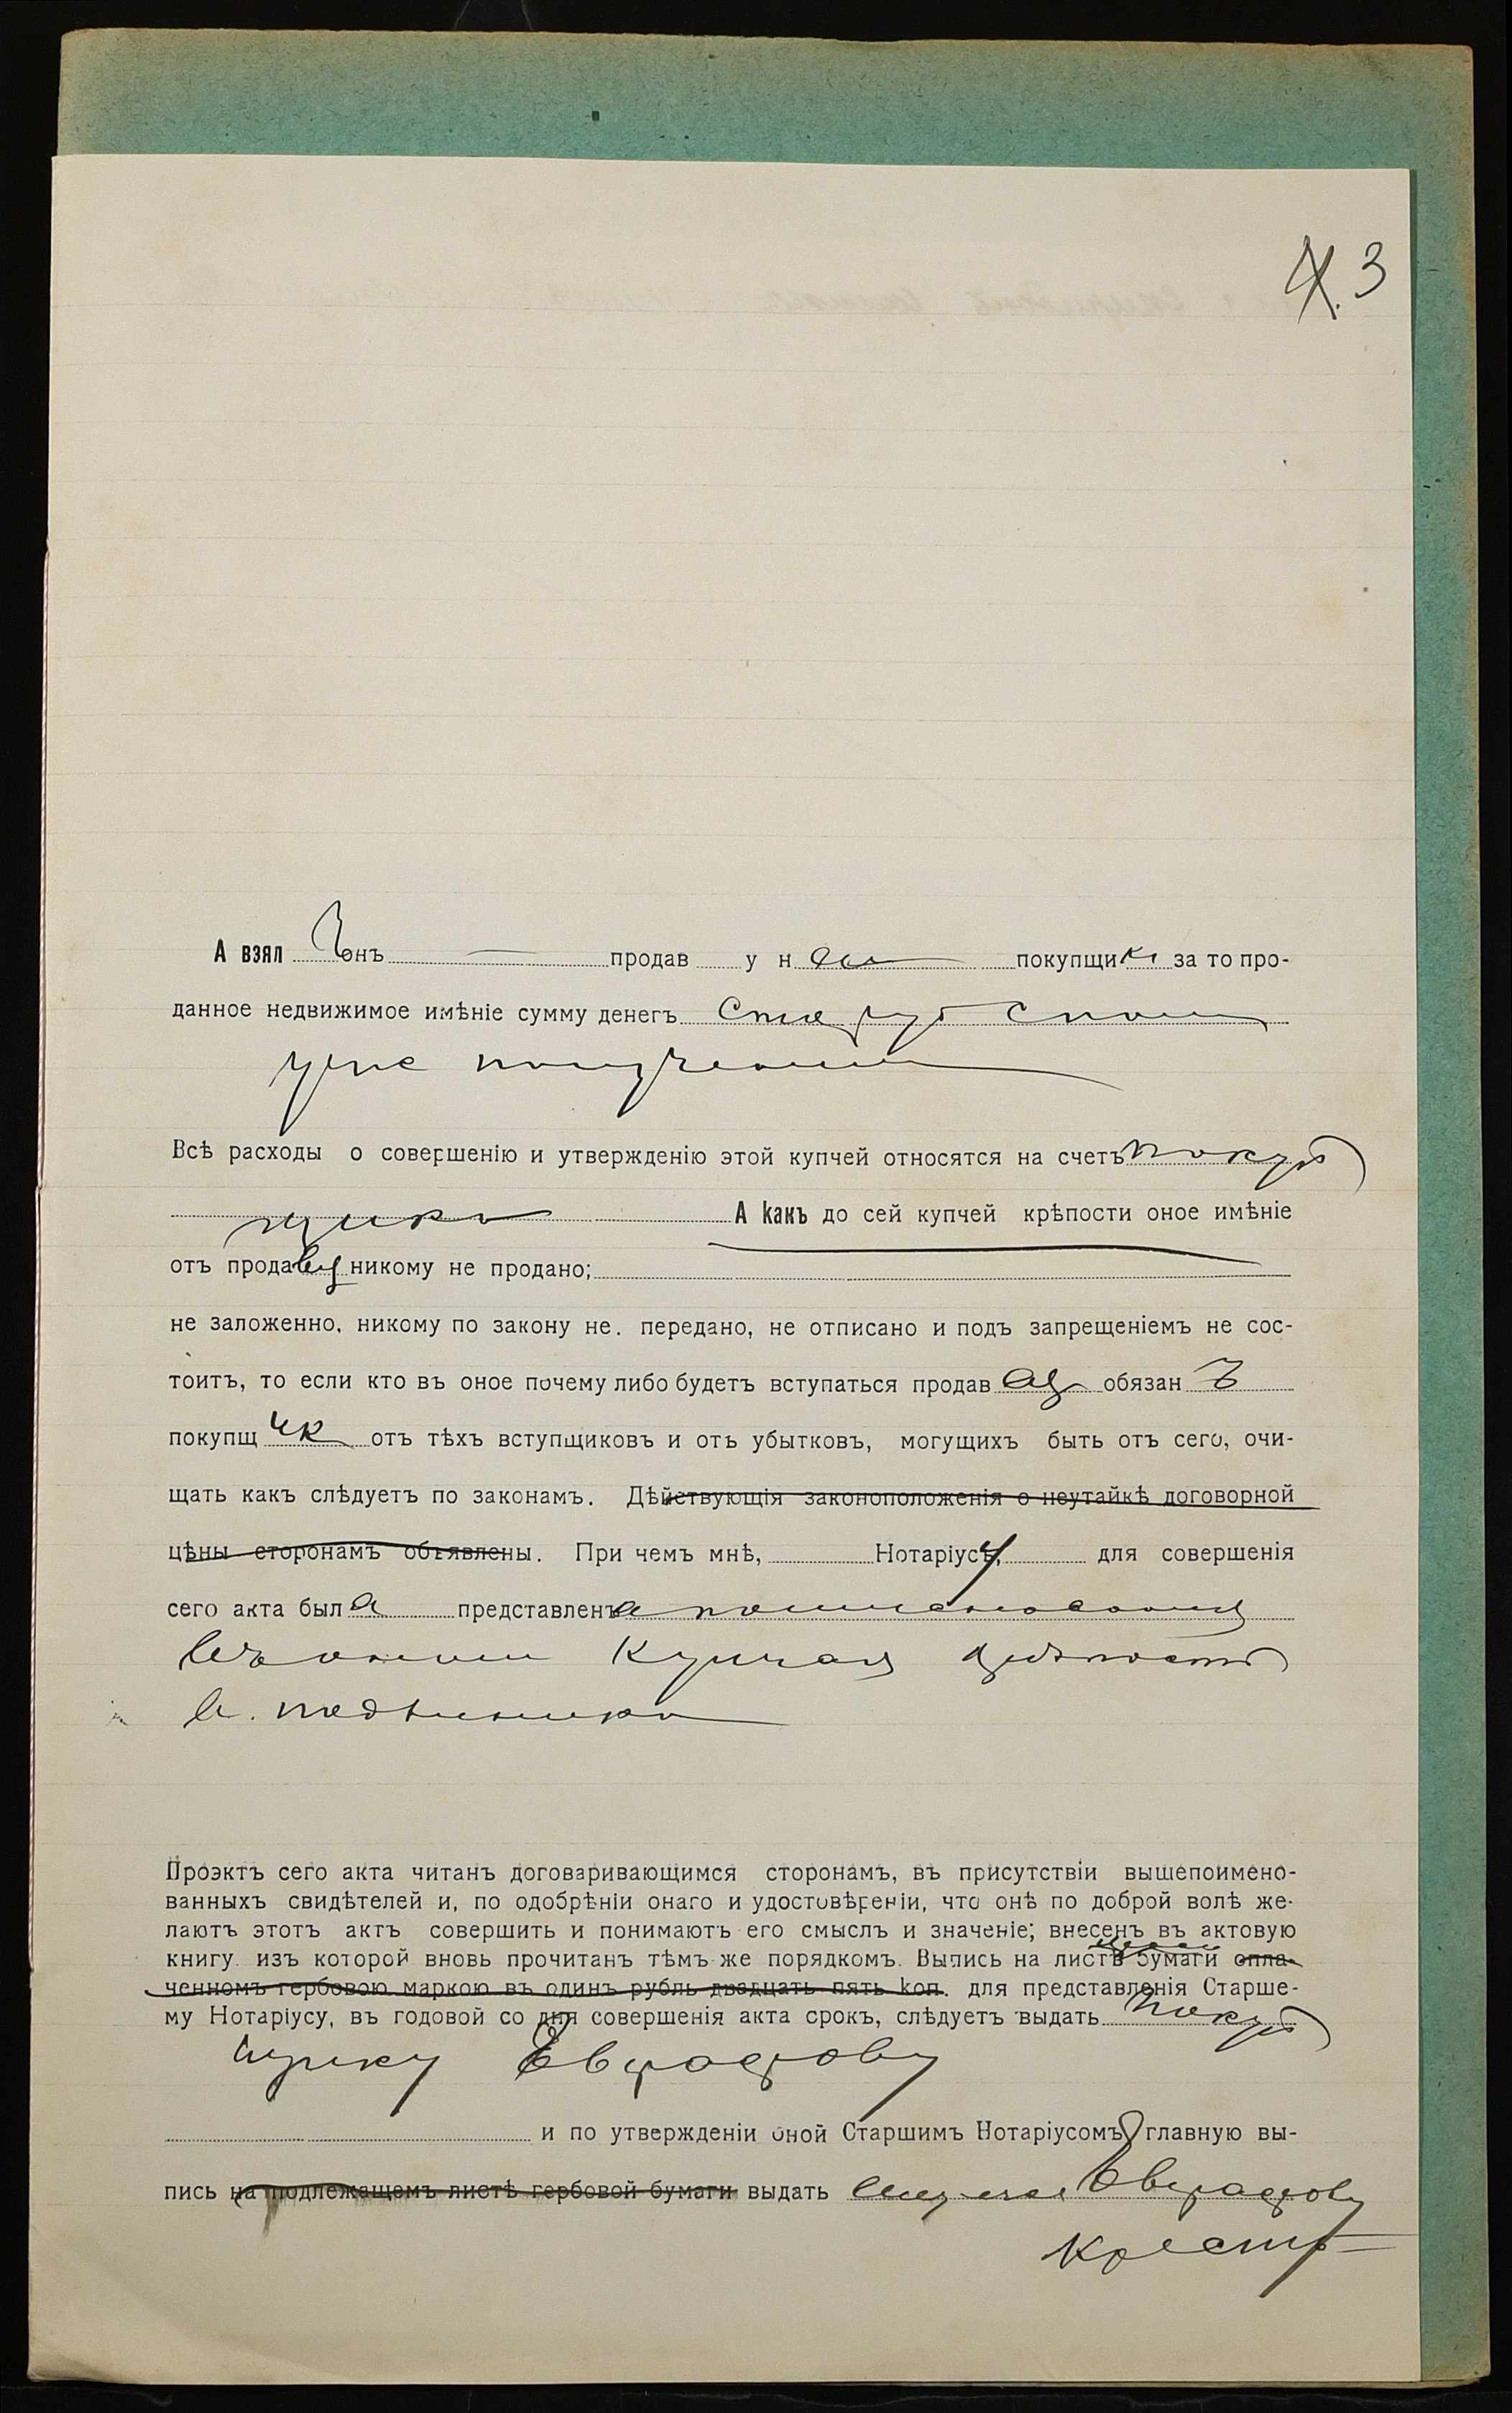 4. 3
А взялъ онъ — продав у н покупщик за то про-
данное недвижимое имѣніе сумму денегъ Сто руб
уже
Всѣ расходы о совершенію и утвержденію этой купчей относятся на счетъ покуп
щика А какъ до сей купчей крѣпости оное имѣніе
отъ продавца никому не продано;
не заложенно, никому по закону не. передано, не отписано и подъ запрещеніемъ не сос-
тоитъ, то если кто въ оное почему либо будетъ вступаться продавец обязанъ
покупщик отъ тѣхъ вступщиковъ и отъ убытковъ, могущихъ быть отъ сего, очи-
щать какъ слѣдуетъ по законамъ. Дѣйствующія законоположенія о неутайкѣ договорной
цѣны сторонамъ объявлены. При чемъ мнѣ, Нотаріусу, для совершенія
сего акта была представлена поименованная
Купчая крѣпость
Проэктъ сего акта читанъ договаривающимся сторонамъ, въ присутствіи вышепоимено-
ванныхъ свидѣтелей и, по одобрѣніи онаго и удостовѣреніи, что онѣ по доброй волѣ же-
лаютъ этотъ актъ совершить и понимаютъ его смыслъ и значеніе; внесенъ въ актовую
книгу. изъ которой вновь прочитанъ тѣмъ же порядкомъ. Выпись на листѣ бумаги опла-
ченномъ гербовою маркою въ одинъ рубль двадцать пять коп. для представленія Старше-
му Нотаріусу, въ годовой со дня совершенія акта срокъ, слѣдуетъ выдать покуп
щику Евграфову
и по утвержденіи оной Старшимъ Нотаріусомъ главную вы-
пись на подлежащемъ листѣ гербовой бумаги выдать Евграфову